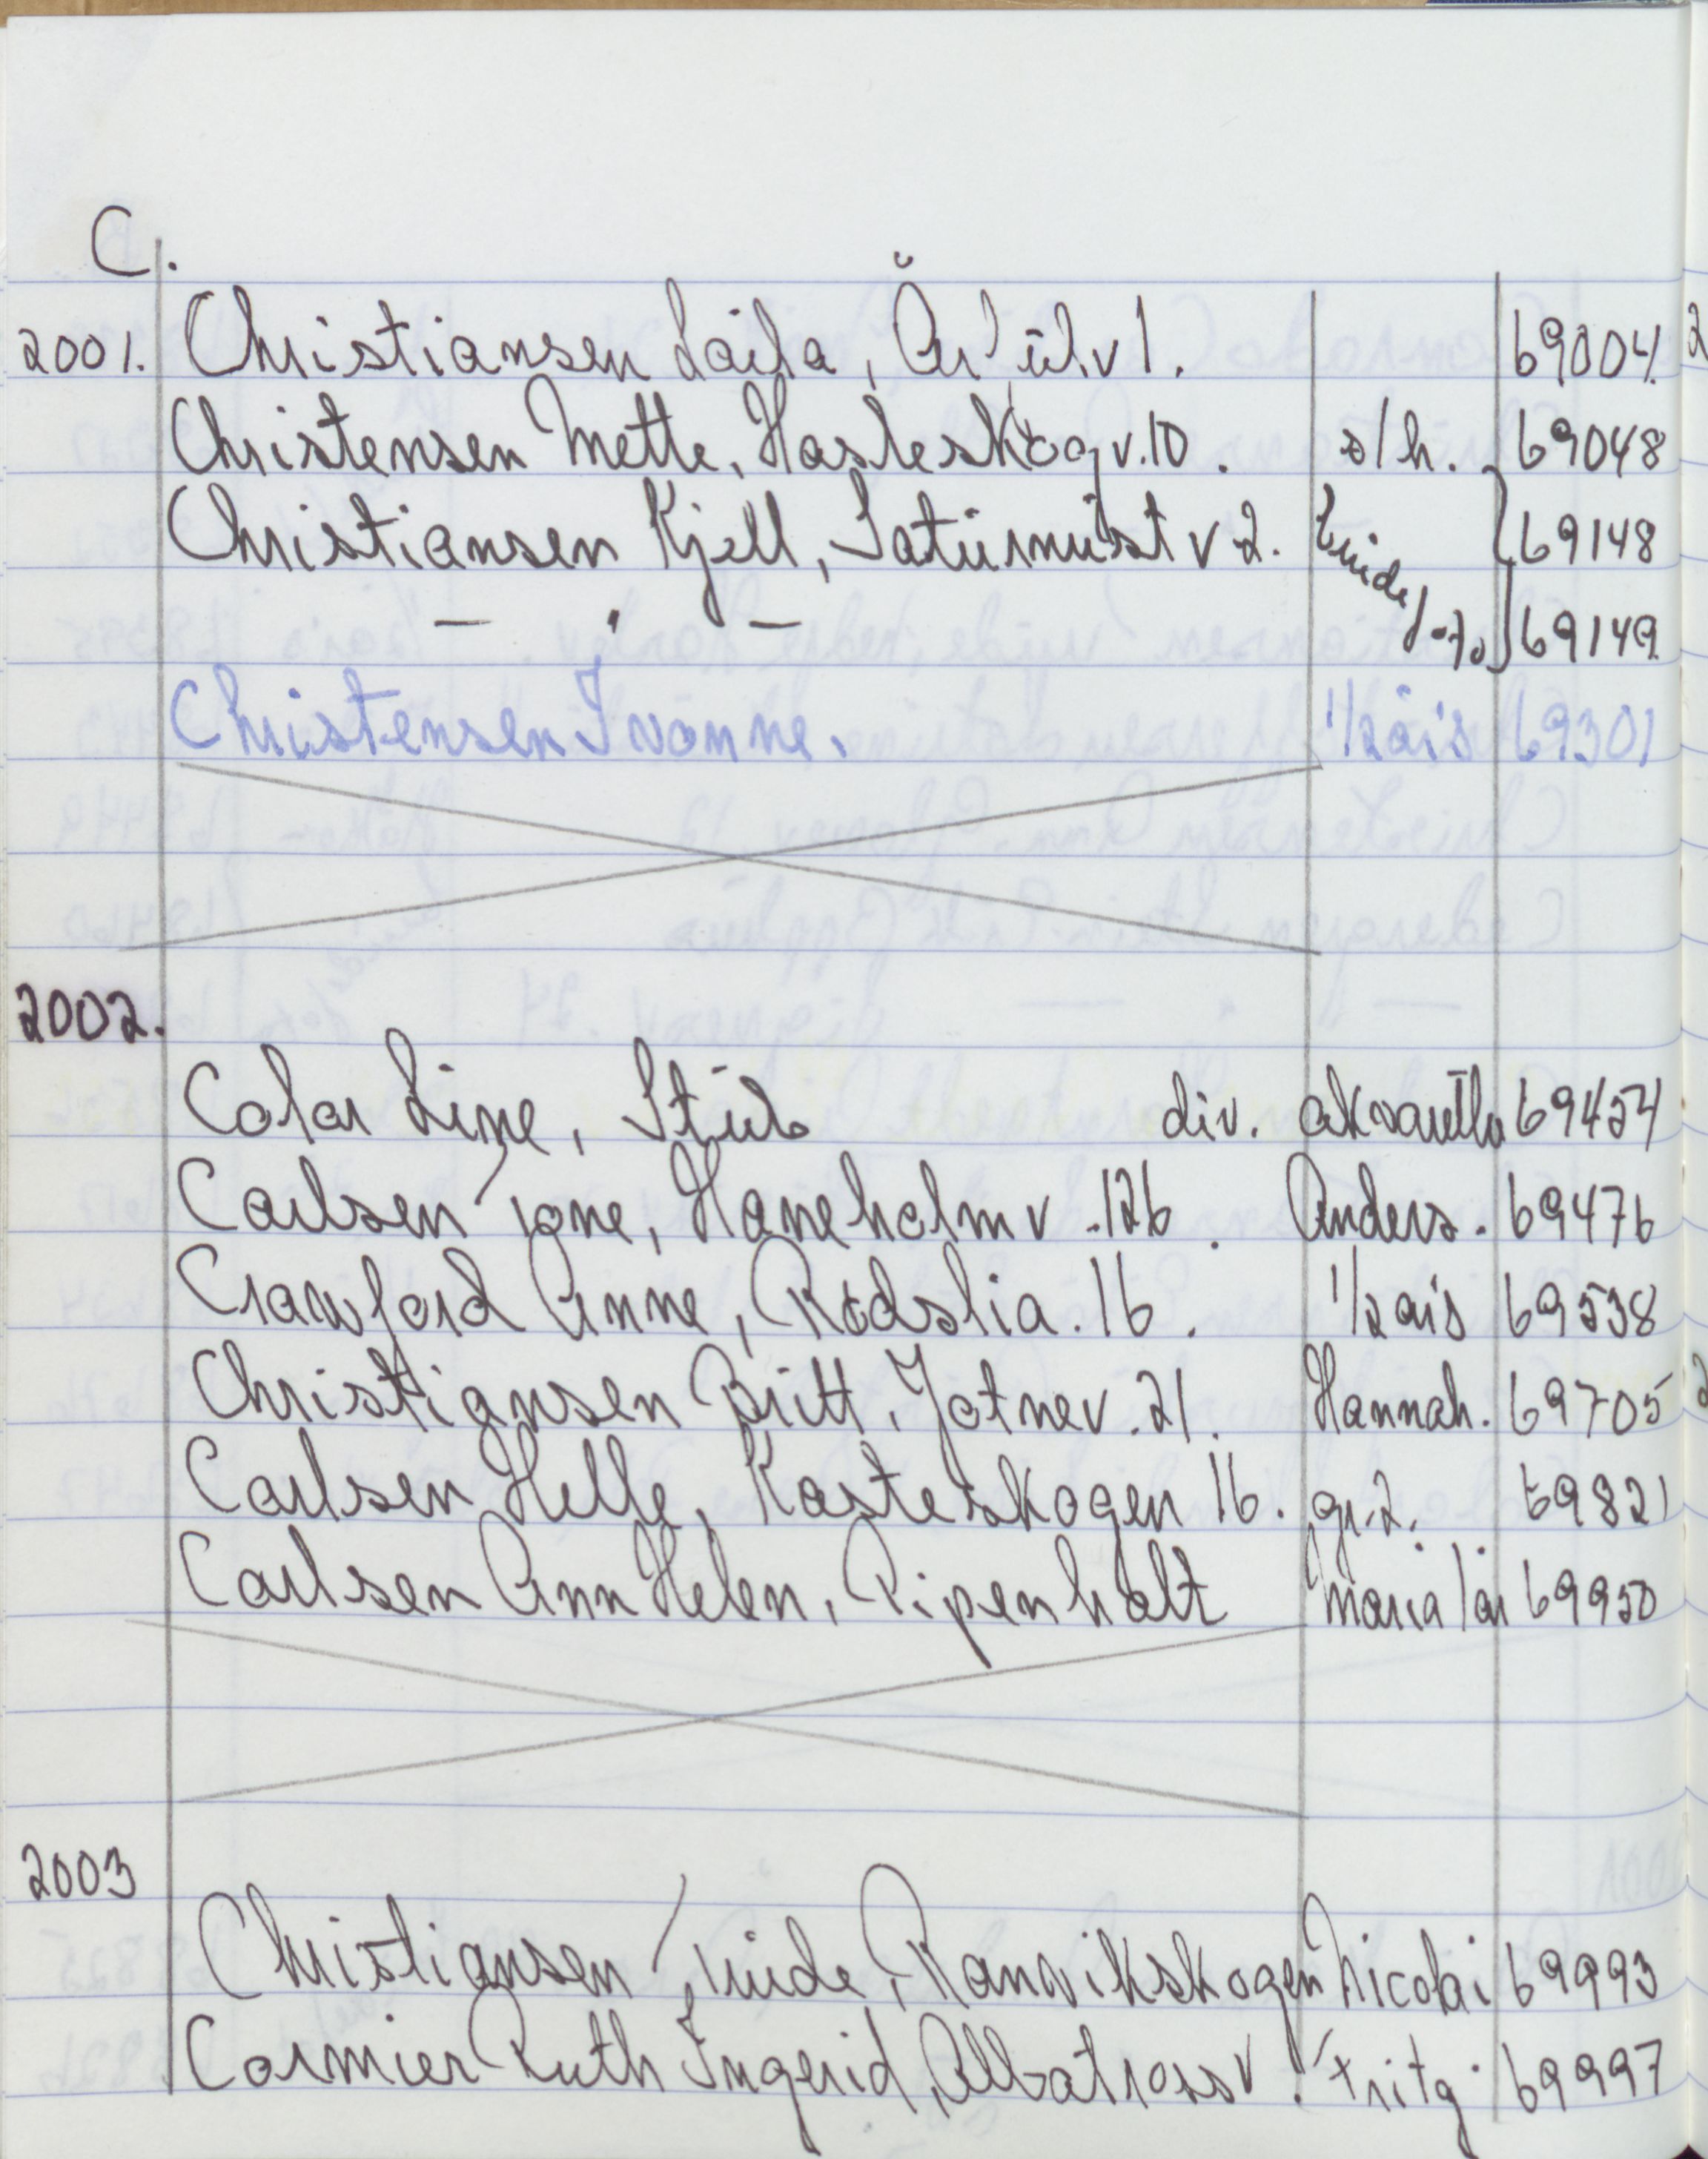 C.
2001. Christiansen Laila, v 1. 69004.
Christensen Mette, Hasleskogv. 10. s/h. 69048
Christiansen Kjell, Saturnust v 2. 69148
— " — 69149
Christensen Ivonne. 1/2 års 69301
2002.
Color Line, Stub div. 69454
Carlsen Tone, Haneholmv. 126. Anders. 69476
Crawford Anne, Rødslia. 16. 1/2 års 69538
Christiansen Britt, Jotnev. 21. Hannah. 69705
Carlsen Helle, Kasteskogen 16. gr. 2. 69821
Carlsen Ann Helen, Pipenholt Maria 1 år 69950
2003
Christiansen Truide, Ranvikskogen Nicolai 69993
Cormier Ruth Ingerid, Albatrossv. Fritz. 69997